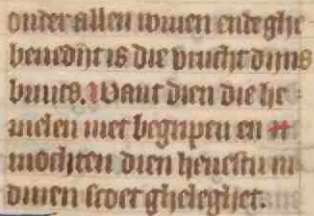 onder allen wiuen ende ghe
benedijt is die vrucht dijns
buucs. Want dien die he
melen niet begripen en
mochten dien heuestu in
dinen scoet gheleghet.